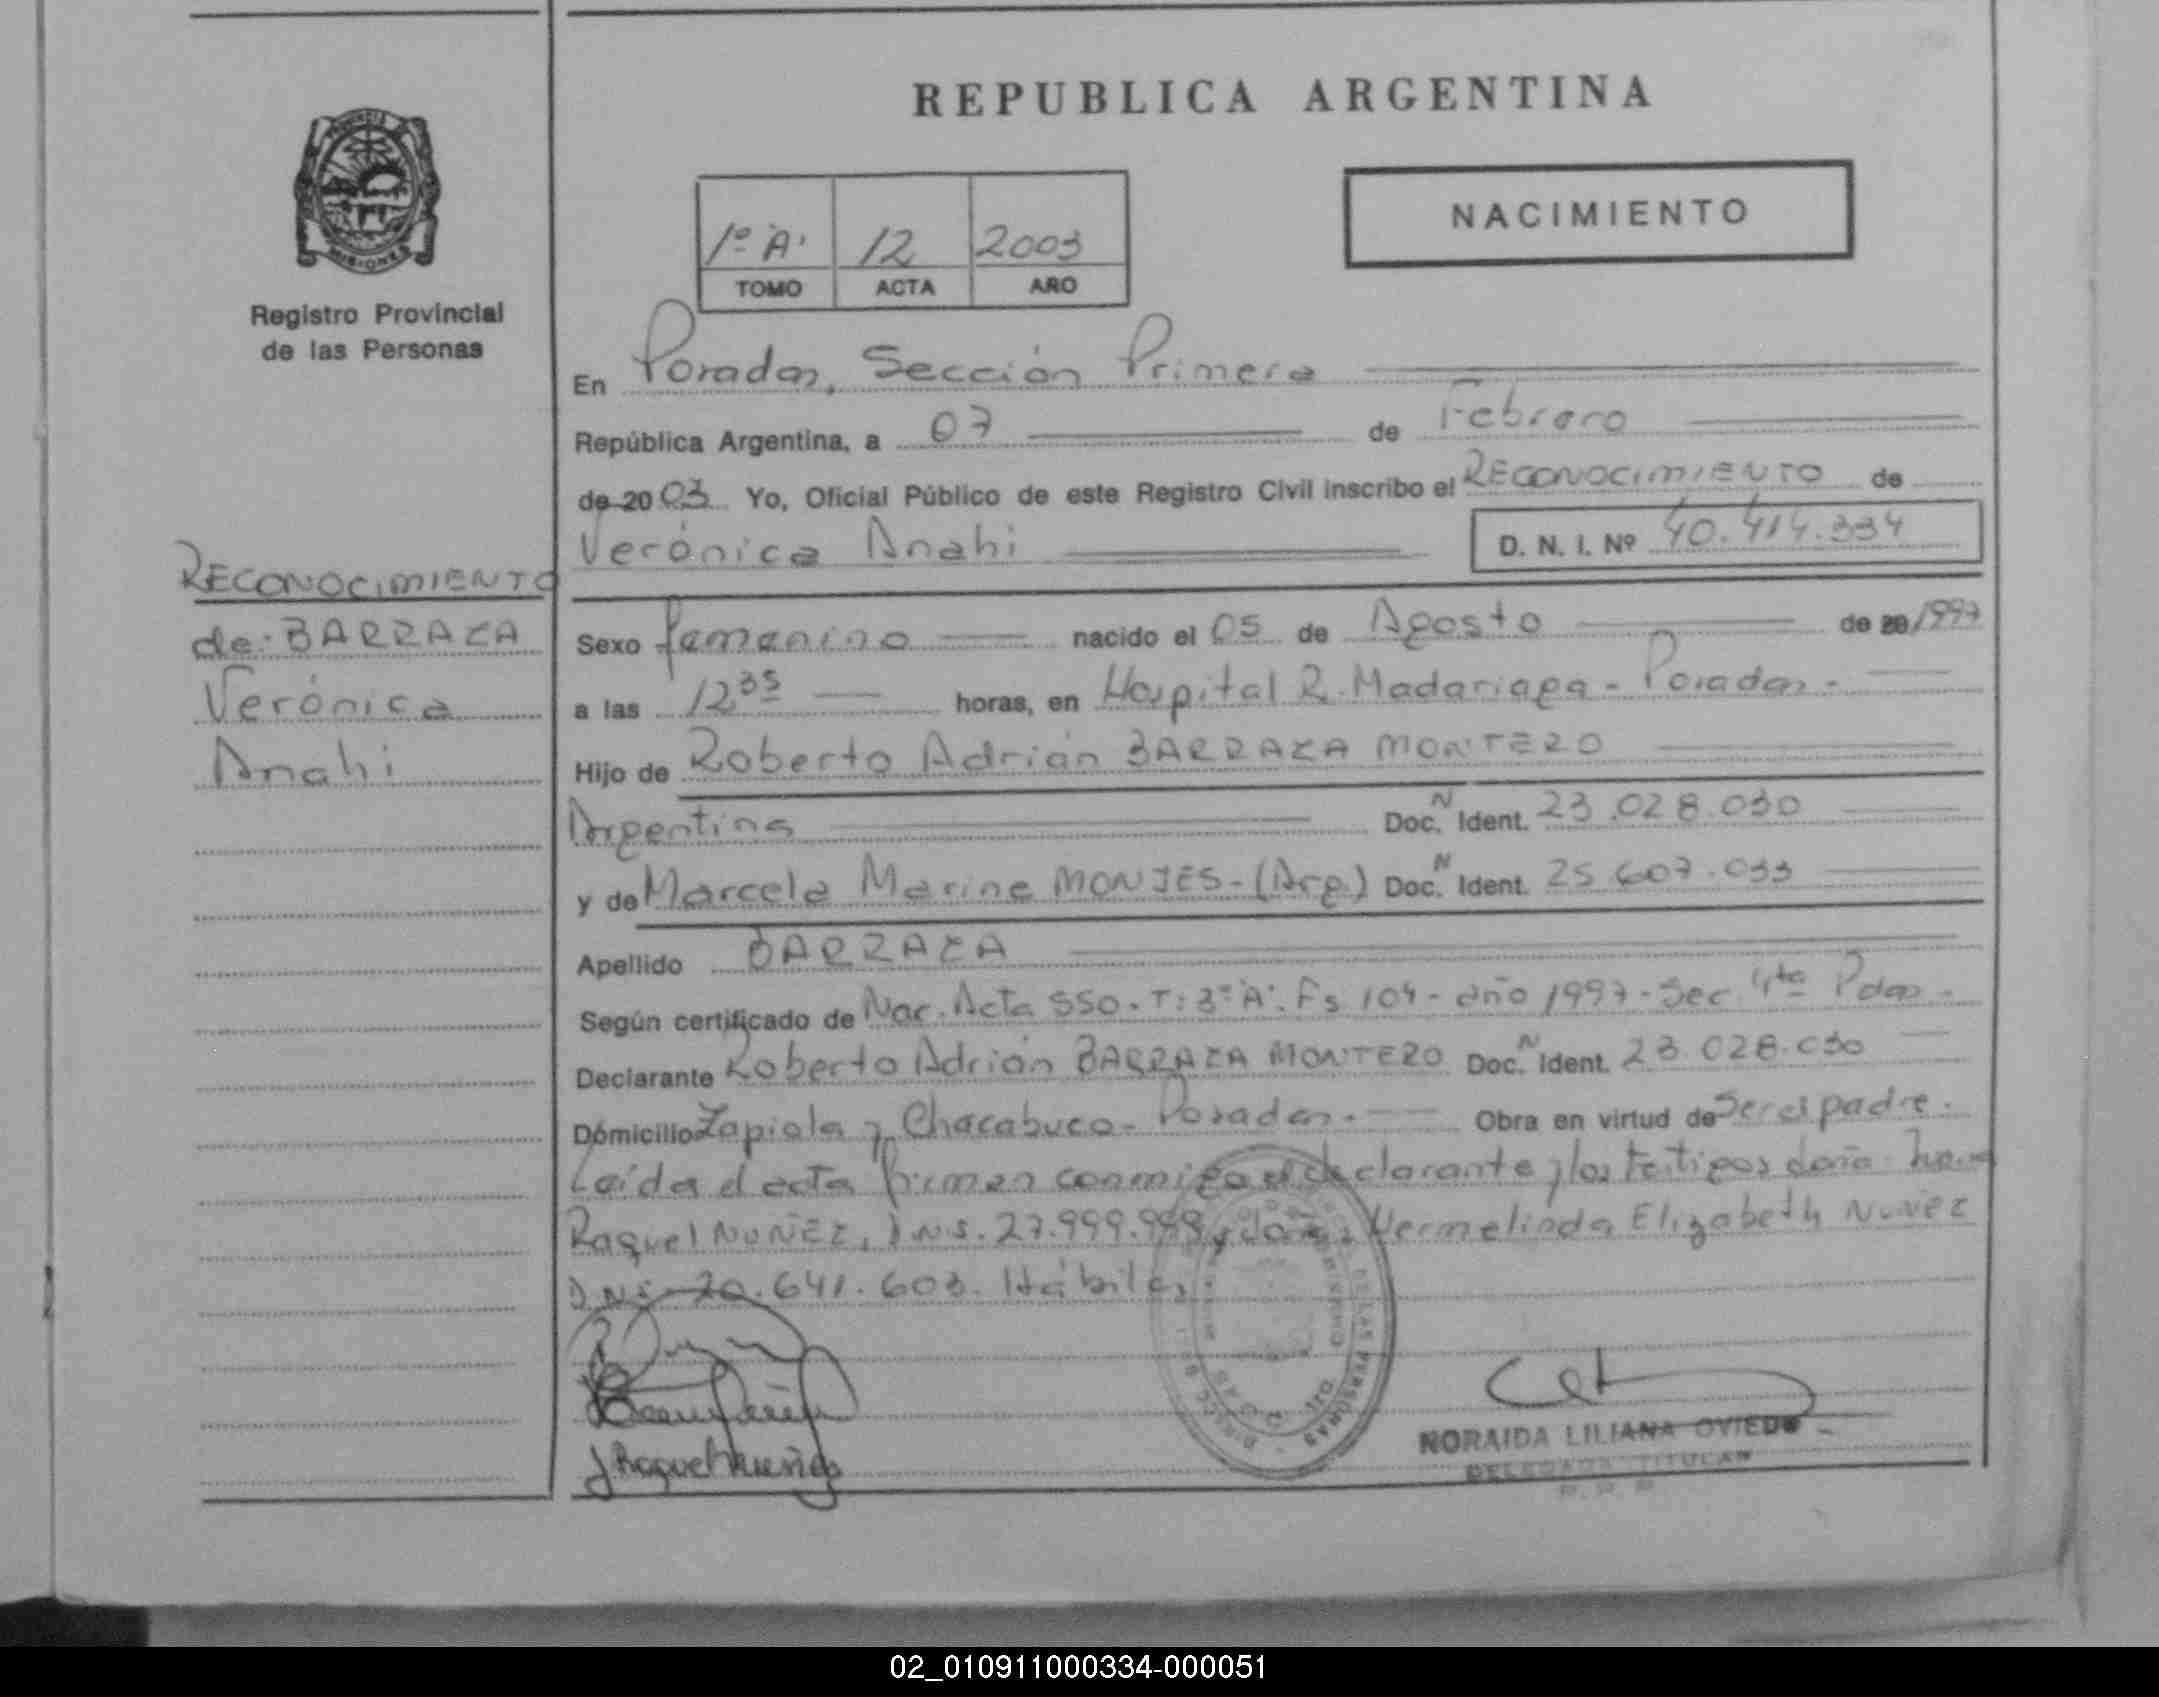 REPUBLICA ARGENTINA
PROVINCIA DE
MISIONES
Registro Provincial
de las Personas
1º "A" 12 2003
TOMO ACTA AÑO
NACIMIENTO
En Posadas, Sección Primera
República Argentina, a 07 de Febrero
de 2003 Yo, Oficial Público de este Registro Civil inscribo el RECONOCIMIENTO de
Verónica Anahi D. N. I. Nº 40.414.334
RECONOCIMIENTO
de: BARRAZA
Verónica
Anahi
Sexo femenino nacido el 05 de Agosto de 20/1997
a las 12³⁵ horas, en Hospital R. Madariaga - Posadas -
Hijo de Roberto Adrián BARRAZA MONTERO
Argentina Doc. N Ident. 23.028.030
y de Marcela Marina MONJES - (Arg.) Doc. N Ident. 25.607.033
Apellido BARRAZA
Según certificado de Nac. Acta 550. T: 3º "A". Fs 104 - año 1997 - Sec 4ta Pdas -
Declarante Roberto Adrián BARRAZA MONTERO Doc. N Ident. 23.028.030
Domicilio Zapiola y Chacabuco - Posadas. Obra en virtud de Ser el padre.
Leída el acta firman conmigo el declarante y los testigos doña
Raquel NUÑEZ, D.N.I. 27.999.999 y doña Hermelinda Elizabeth NUÑEZ
D.N.I. 20.641.603. Hábiles
DE LAS PERSONAS
J Raquel Nuñez
NORAIDA LILIANA OVIEDO
DELEGADA TITULAR
R. P. P.
02_010911000334-000051